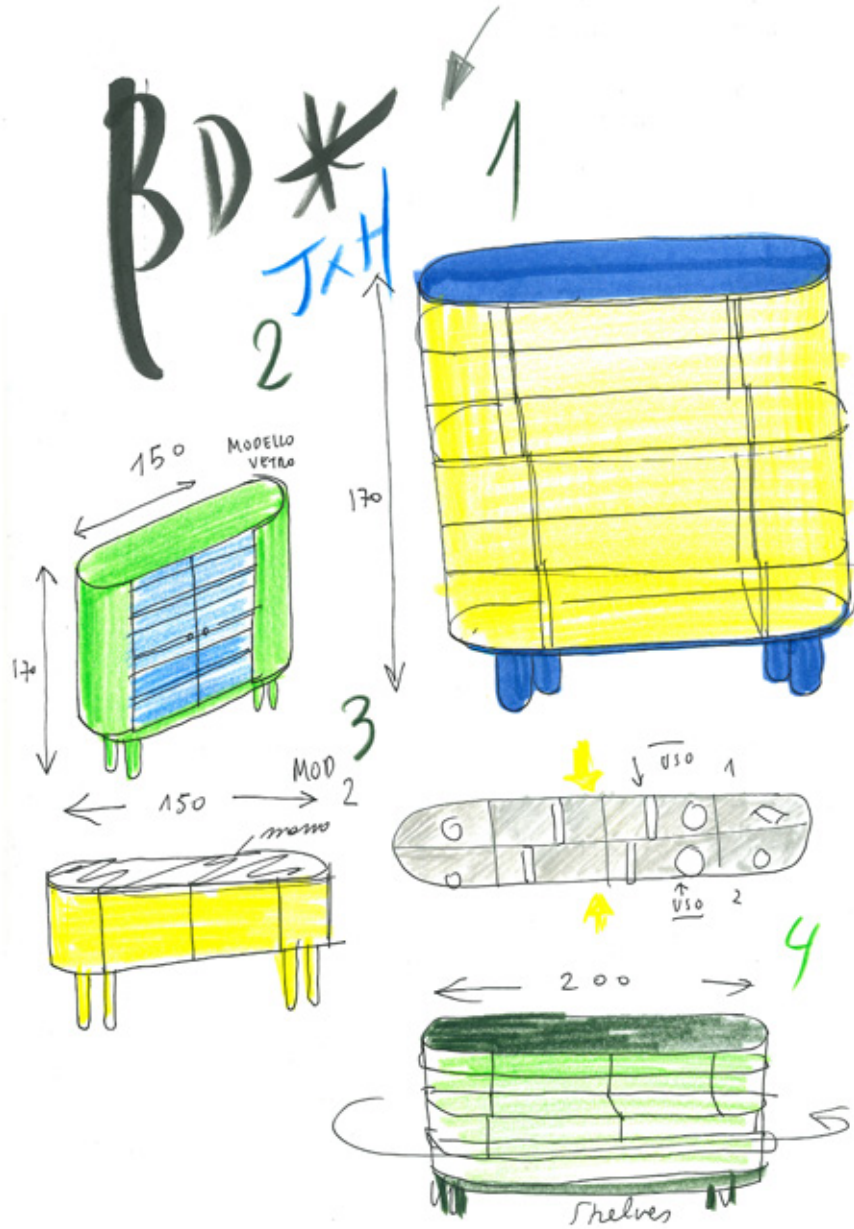 BD*
JxH
1
2
150
MODELLO
VETRO
170
170
3
MOD
2
150
USO
1
USO
2
4
200
Shelves